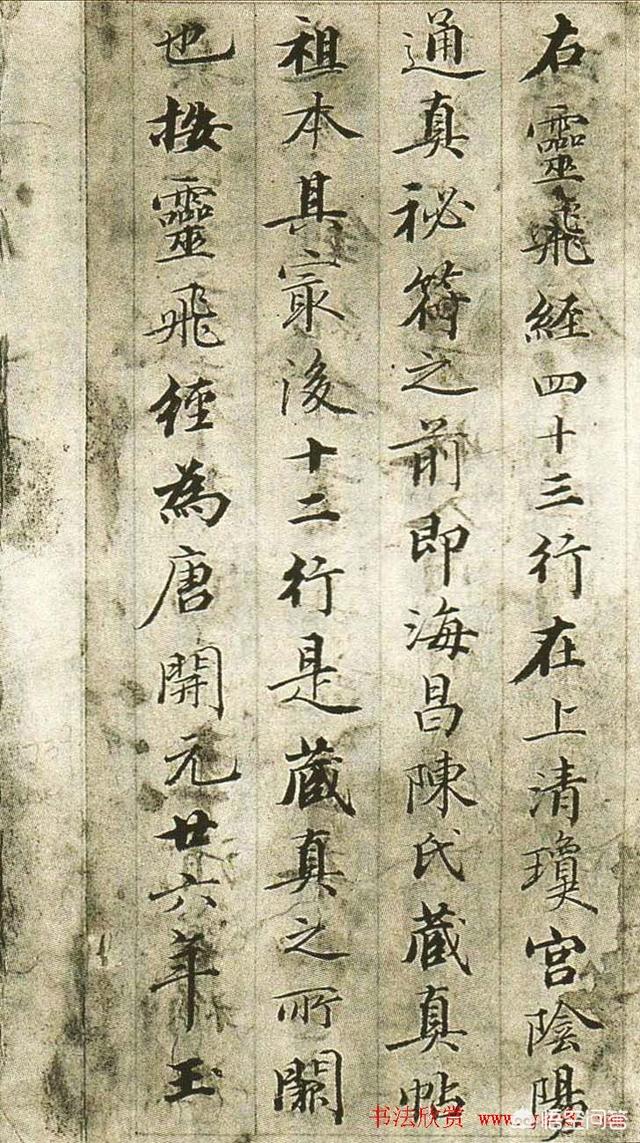 右靈飛經四十三行在上清瓊宮陰陽
通真祕符之前即海昌陳氏藏真帖
祖本其冣後十二行是藏真之所闕
也按靈飛經為唐開元廿六年玉
书法欣赏 www.
悟空问答